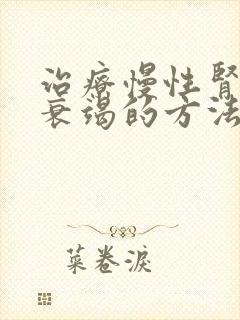 治療慢性腎
衰竭的方法
菜卷淚